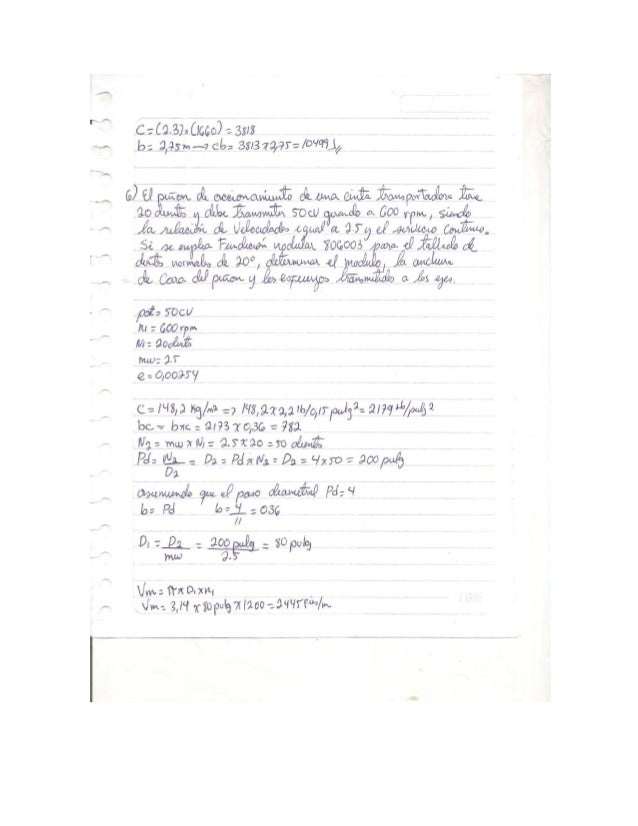 C=(2.3)x(1660) = 3818
b= 2,75m → cb= 3813x2,75=10499
6) El piñon de accionamiento de una cinta transportadora tiene
20 dientes y debe transmitir 50cv girando a 600 rpm, siendo
la relación de Velocidades igual a 2.5 y el servicio Continuo.
Si se emplea Fundición nodular 806003 para el tallado de
dients normales de 20°, determinar el modulo, la anchura
de Cara del piñon y los esfuerzos transmitidos a los ejes.
pot= 50CV
n1 = 600rpm
N1= 20dients
mw= 2.5
e=0,00254
C=148,2 Kg/m2 => 148,2x2,2 lb/0,15 pulg2= 2179 lb/pulg2
bc = bxc = 2173 x 0,36 = 782
N2 = mw x N1 = 2.5x20 = 50 dients
Pd= N2 = D2 = Pd x N2 = D2 = 4x50 = 200 pulg
D2
asumiendo que el paso diametral Pd=4
b= Pd b= 4 = 036
11
D1 = D2 = 200 pulg = 80 pulg
mw 2.5
Vm = π x D1 x n1
Vm= 3,14 x 80pulg x 1200 = 2445 Pies/m